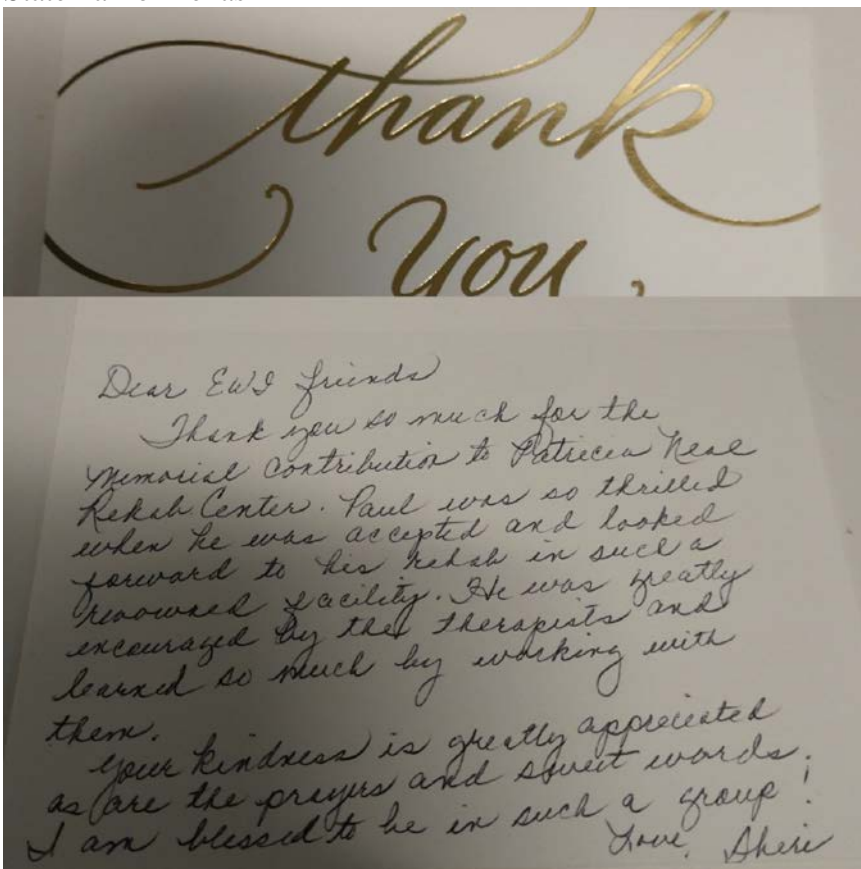 thank
you
Dear EWI friends
Thank you so much for the
Memorial Contribution to Patricia Neal
Rehab Center. Paul was so thrilled
when he was accepted and looked
forward to his rehab in such a
renowned facility. He was greatly
encouraged by the therapists and
learned so much by working with
them.
Your kindness is greatly appreciated
as are the prayers and sweet words.
I am blessed to be in such a group!
Love, Sheri